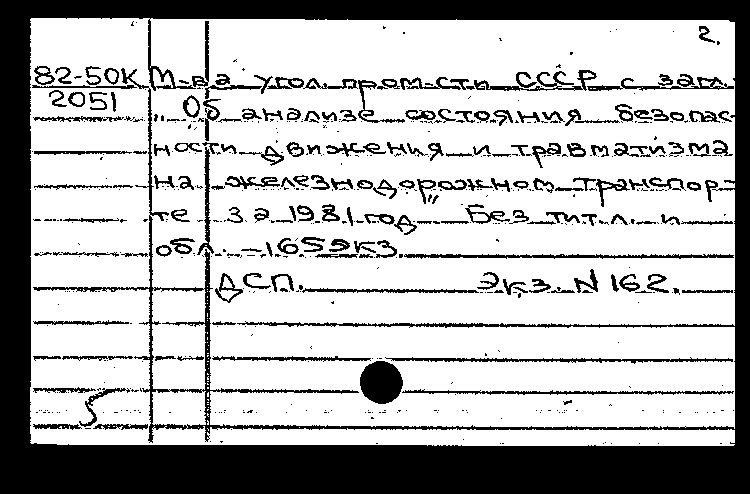 2.
82-50К М-ва угол. пром-сти СССР с загл.
2051 „Об анализе состояния безопас-
ности движения и травматизма
на железнодорожном транспор-
те за 1981 год" Без тит. л. и
обл. – 165экз.
ДСП. Экз. N 162.